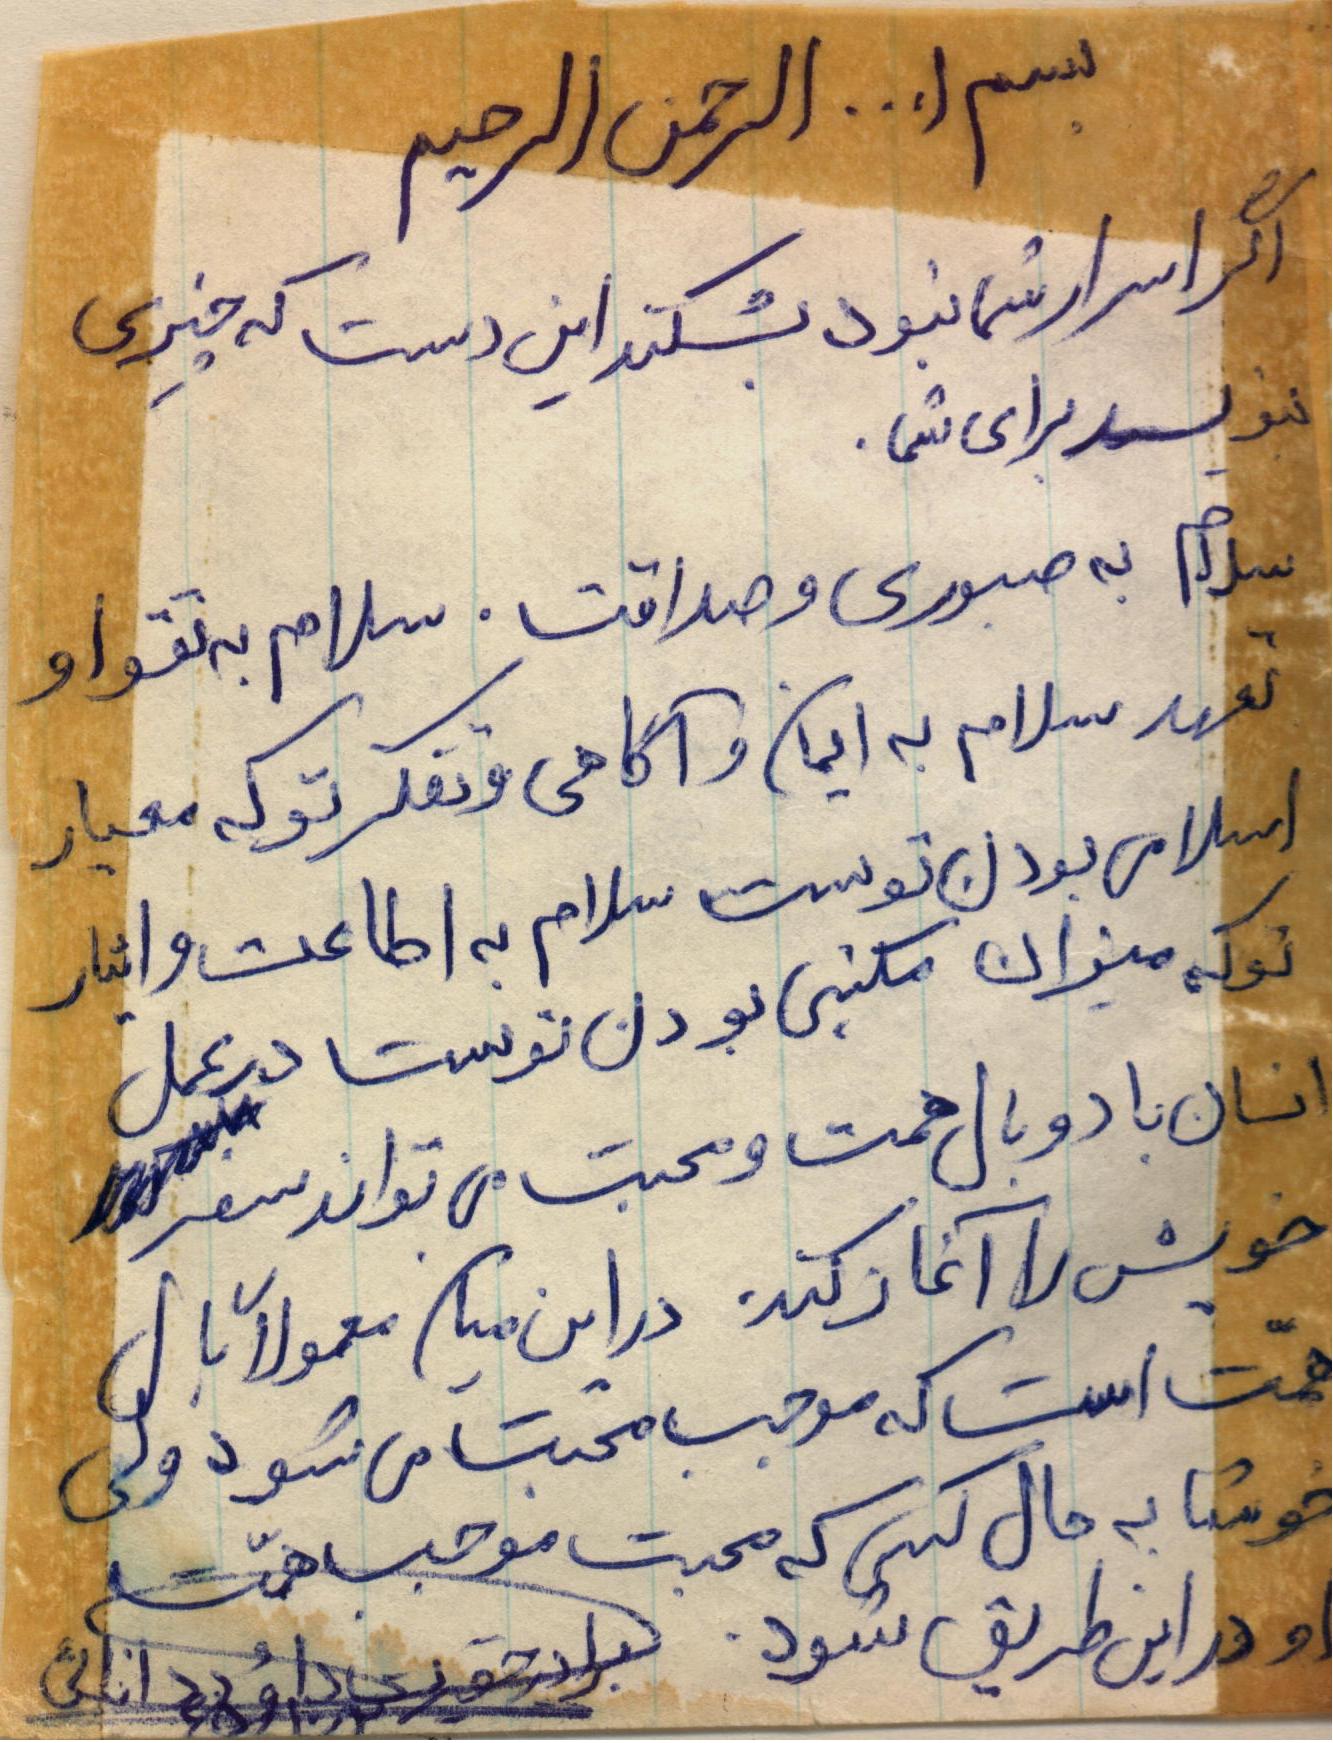 بسم ا... الرحمن الرحیم
اگر اسرار شما نبود بشکند این دست که چیزی
ننویسد برای شما.
سلام به صبوری و صداقت. سلام به تقوا و
تعهد سلام به ایمان و آگاهی و تفکر تو که معیار
اسلامی بودن توست سلام به اطاعت و ایثار
تو که میزان مکتبی بودن توست در عمل
انسان با دو بال همت و محبت می تواند سفر
خویش را آغاز کند. در این میان معمولاً بال
همّت است که موجب محبّت می شود ولی
خوشا به حال کسی که محبت موجب همّت
او در این طریق شود.
برادر حقیر داود دانائی